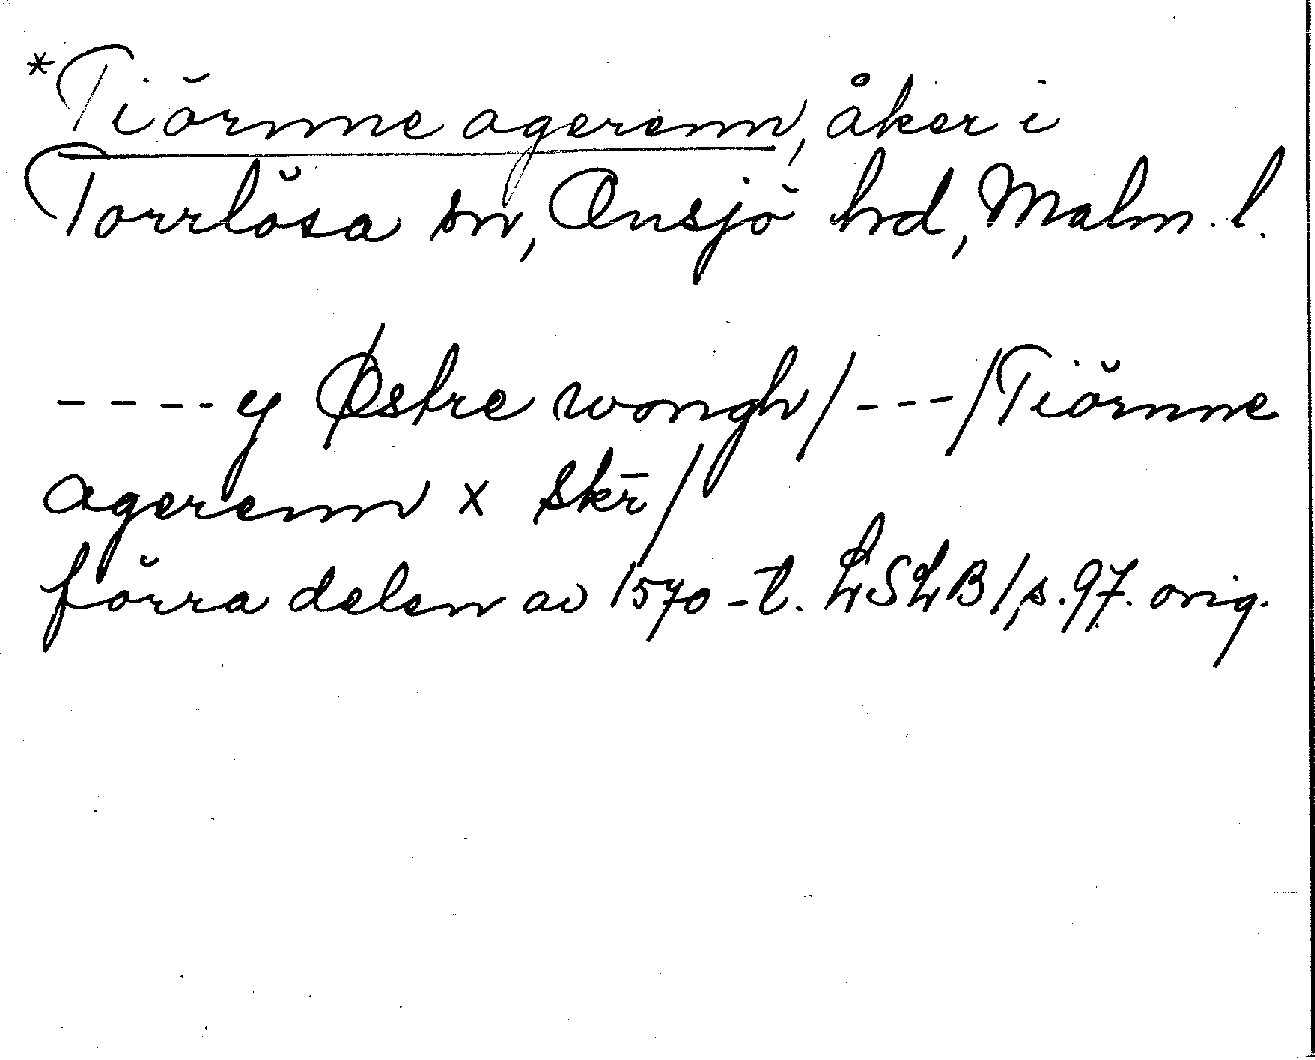 *Tiörnne agerenn, åker i
Torrlösa sn, Onsjö hd, Malm. l.
----y Østre wongh/---/Tiörnne
agerenn x skr̄/
förra delen av 1570-t. LSLB 1, s. 97. orig.